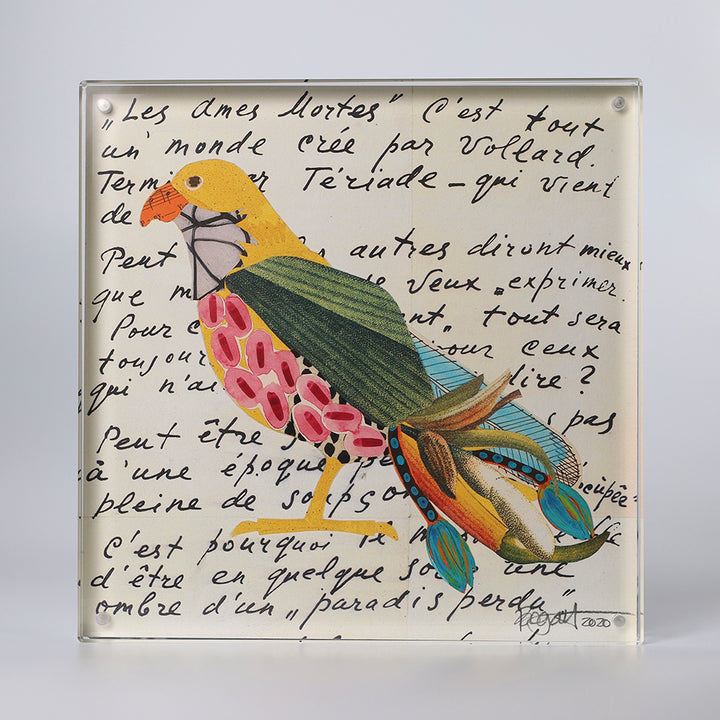 „Les Ames Mortes" C'est tout
un monde crée par Vollard.
Termi er Tériade – qui vient
de
Peut les autres diront mieux
que m je veux „exprimer.
Pour c nt„ tout sera
toujour pour ceux
qui n'a dire ?
Peut être s pas
à une époque pe
pleine de soupço cupée"
C'est pourquoi il m
d'être en quelque so une
ombre d'un „paradis perdu"
2020